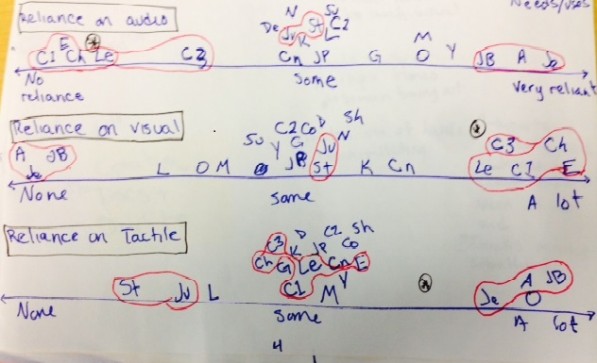 Needs/uses
Reliance on audio
N Su
De Ju St C2
K L
C1 E Ch Le C3 Cn JP G M O Y JB A Je
No reliance some Very reliant
Reliance on visual
C2 Co D Sh
A JB Su Y G Ju N C3 Ch
Je L O M JP St K Cn Le C1 E
None some A lot
Reliance on Tactile
C3 D C2 Sh
K JP Co
Ch G Le Cn E
St Ju L C1 M Y Je A JB O
None Some A lot
4